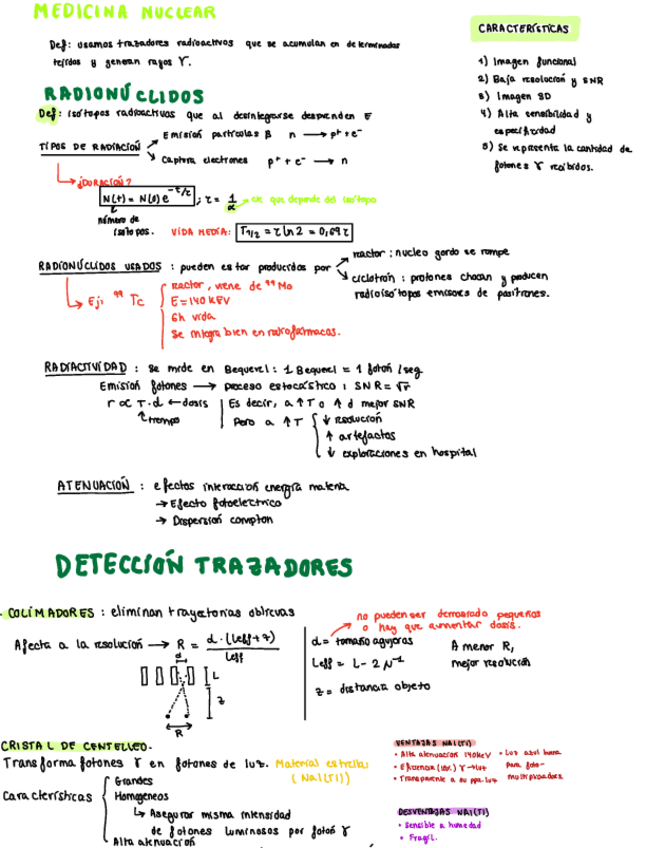 MEDICINA NUCLEAR
Def: usamos trazadores radioactivos que se acumulan en determinados
tejidos y generan rayos γ.
CARACTERÍSTICAS
1) Imagen funcional
2) Baja resolución y SNR
3) Imagen 3D
4) Alta sensibilidad y
especificidad
5) Se representa la cantidad de
fotones γ recibidos.
RADIONÚCLIDOS
Def: isótopos radioactivos que al desintegrarse desprenden E
TIPOS DE RADIACIÓN
Emisión partículas β n → p⁺+e⁻
Captura electrones p⁺ + e⁻ → n
¿DURACIÓN?
N(t) = N(0) e^-t/τ ; τ = 1/α cte que depende del isótopo
número de
isótopos.
VIDA MEDIA: T1/2 = τ ln 2 = 0,69 τ
RADIONÚCLIDOS USADOS : pueden estar producidos por
reactor : nucleo gordo se rompe
ciclotrón : protones chocan y producen
radioisótopos emisores de positrones.
Ej: ⁹⁹Tc
reactor, viene de ⁹⁹Mo
E = 140 KEV
6h vida
Se integra bien en radiofármacos.
RADIACTIVIDAD : se mide en Bequerel : 1 Bequerel = 1 fotón / seg
Emisión fotones → proceso estocástico : SNR = √r
r ∝ T · d ← dosis
tiempo
Es decir, a ↑ T o ↑ d mejor SNR
Pero a ↑ T
↓ resolución
↑ artefactos
↓ exploraciones en hospital
ATENUACIÓN : efectos interacción energía materia
→ Efecto fotoeléctrico
→ Dispersión compton
DETECCIÓN TRAZADORES
COLIMADORES : eliminan trayectorias oblicuas
Afecta a la resolución → R = d · (Leff + z) / Leff
d
L
z
R
no pueden ser demasiado pequeños
o hay que aumentar dosis.
d = tamaño agujeros
Leff = L - 2 μ⁻¹
z = distancia objeto
A menor R,
mejor resolución
CRISTAL DE CENTELLEO.
Transforma fotones γ en fotones de luz. Material estrella:
(NaI(Tl))
Características
Grandes
Homogeneos
↳ Asegurar misma intensidad
de fotones luminosos por fotón γ
Alta atenuación
VENTAJAS NAI(Tl)
• Alta atenuación 140keV
• γ → luz
• Transparente a su ppia luz
• Luz azul buena
para foto-
multiplicadores
DESVENTAJAS NAI(Tl)
• Sensible a humedad
• Fragil.